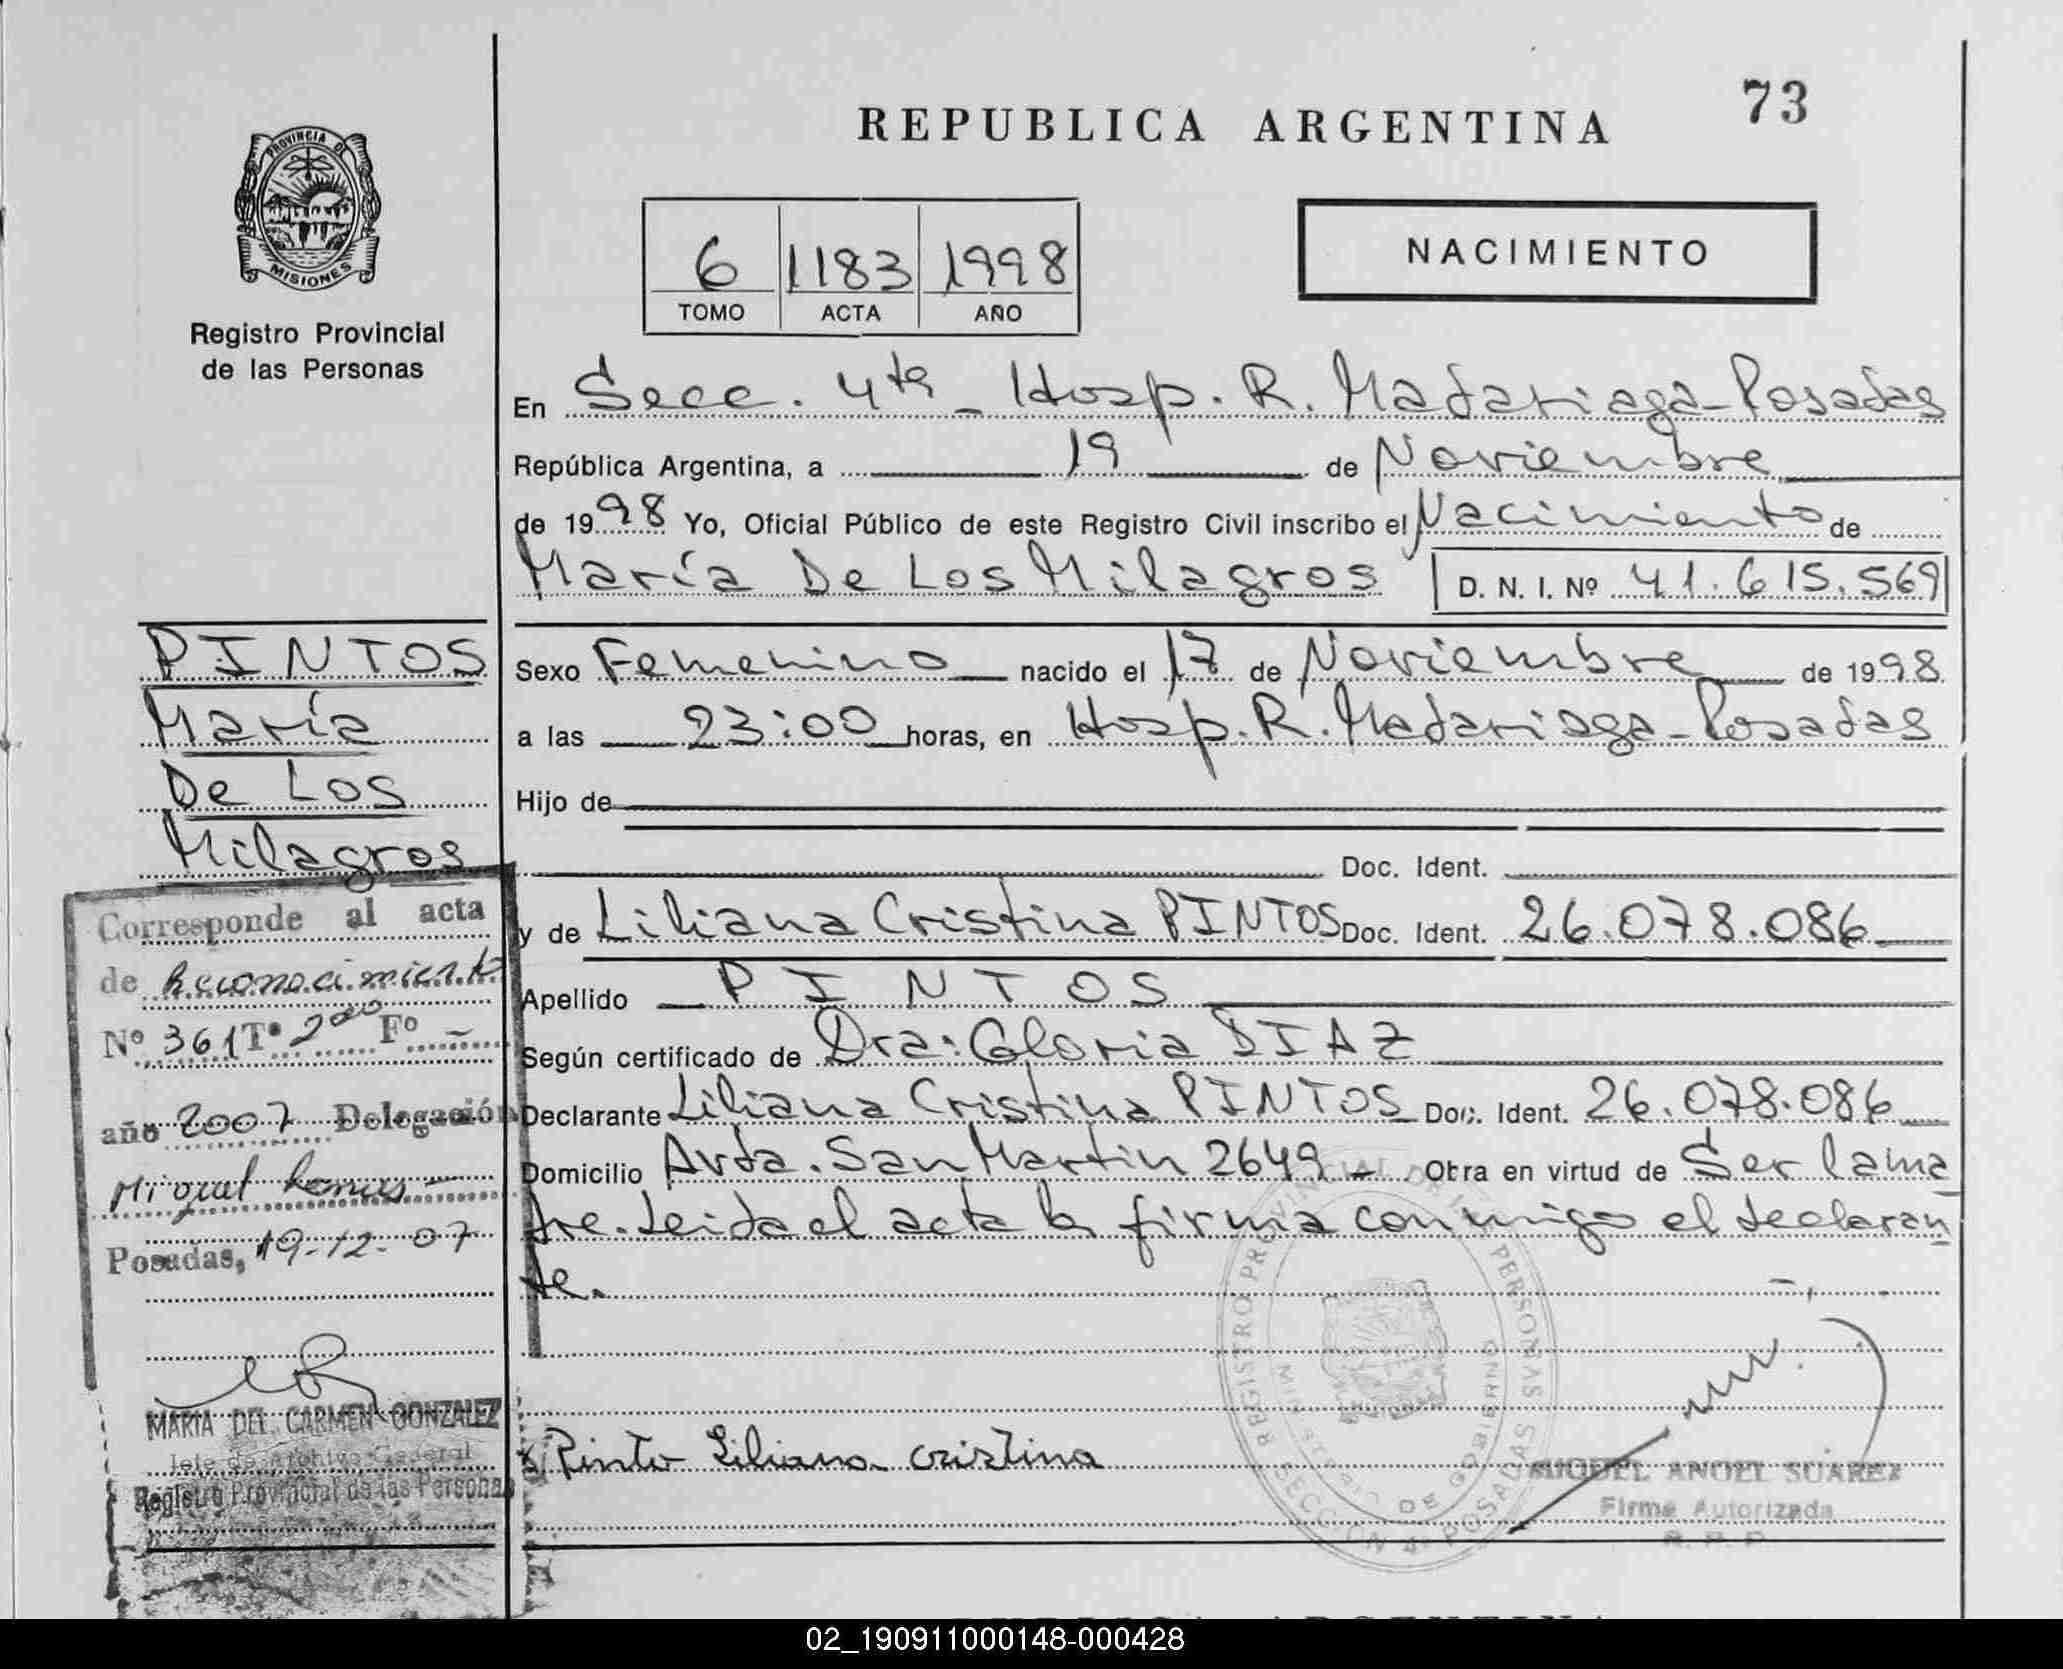 73
REPUBLICA ARGENTINA
PROVINCIA DE
MISIONES
Registro Provincial
de las Personas
6 1183 1998
TOMO ACTA AÑO
NACIMIENTO
En Secc. 4ta - Hosp. R. Madariaga - Posadas
República Argentina, a 19 de Noviembre
de 1998 Yo, Oficial Público de este Registro Civil inscribo el Nacimiento de
María De Los Milagros D. N. I. Nº 41.615.569
Sexo Femenino nacido el 17 de Noviembre de 1998
a las 23:00 horas, en Hosp. R. Madariaga - Posadas
Hijo de
Doc. Ident.
y de Liliana Cristina PINTOS Doc. Ident. 26.078.086
Apellido PINTOS
Según certificado de Dra: Gloria DIAZ
Declarante Liliana Cristina PINTOS Doc. Ident. 26.078.086
Domicilio Avda. San Martin 2649 - Obra en virtud de Ser la ma
dre. Leida el acta la firma conmigo el declaran
te.
Pinto Liliana cristina
MIGUEL ANGEL SUAREZ
Firma Autorizada
R. P. P.
REGISTRO PROVINCIAL DE LAS PERSONAS
SECCION 4a POSADAS
DE GOBIERNO
PINTOS
María
De Los
Milagros
Corresponde al acta
de Reconocimiento
Nº 361 Tº 2do Fº -
año 2007 Delegación
Posadas, 19-12-07
MARIA DEL CARMEN GONZALEZ
Jefe de Archivo General
Registro Provincial de las Personas
02_190911000148-000428